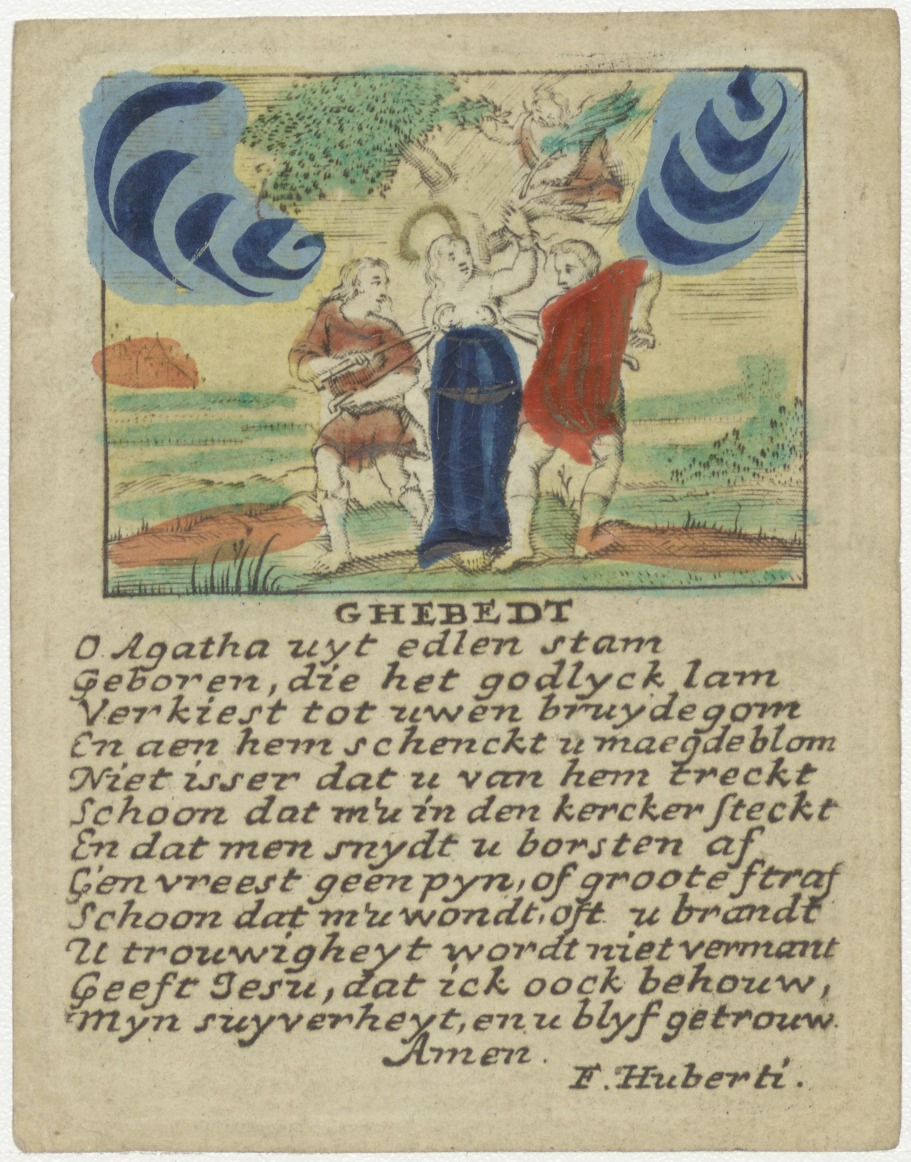 GHEBEDT
O Agatha uyt edlen stam
Geboren, die het godlyck lam
Verkiest tot uwen bruydegom
En aen hem schenckt u maegdeblom
Niet isser dat u van hem treckt
Schoon dat m'u in den kercker steckt
En dat men snydt u borsten af
G'en vreest geen pyn, of groote straf
Schoon dat m'u wondt, oft u brandt
U trouwigheyt wordt niet vermant
Geeft Jesu, dat ick oock behouw,
Myn suyverheyt, en u blyf getrouw.
Amen.
F. Huberti.